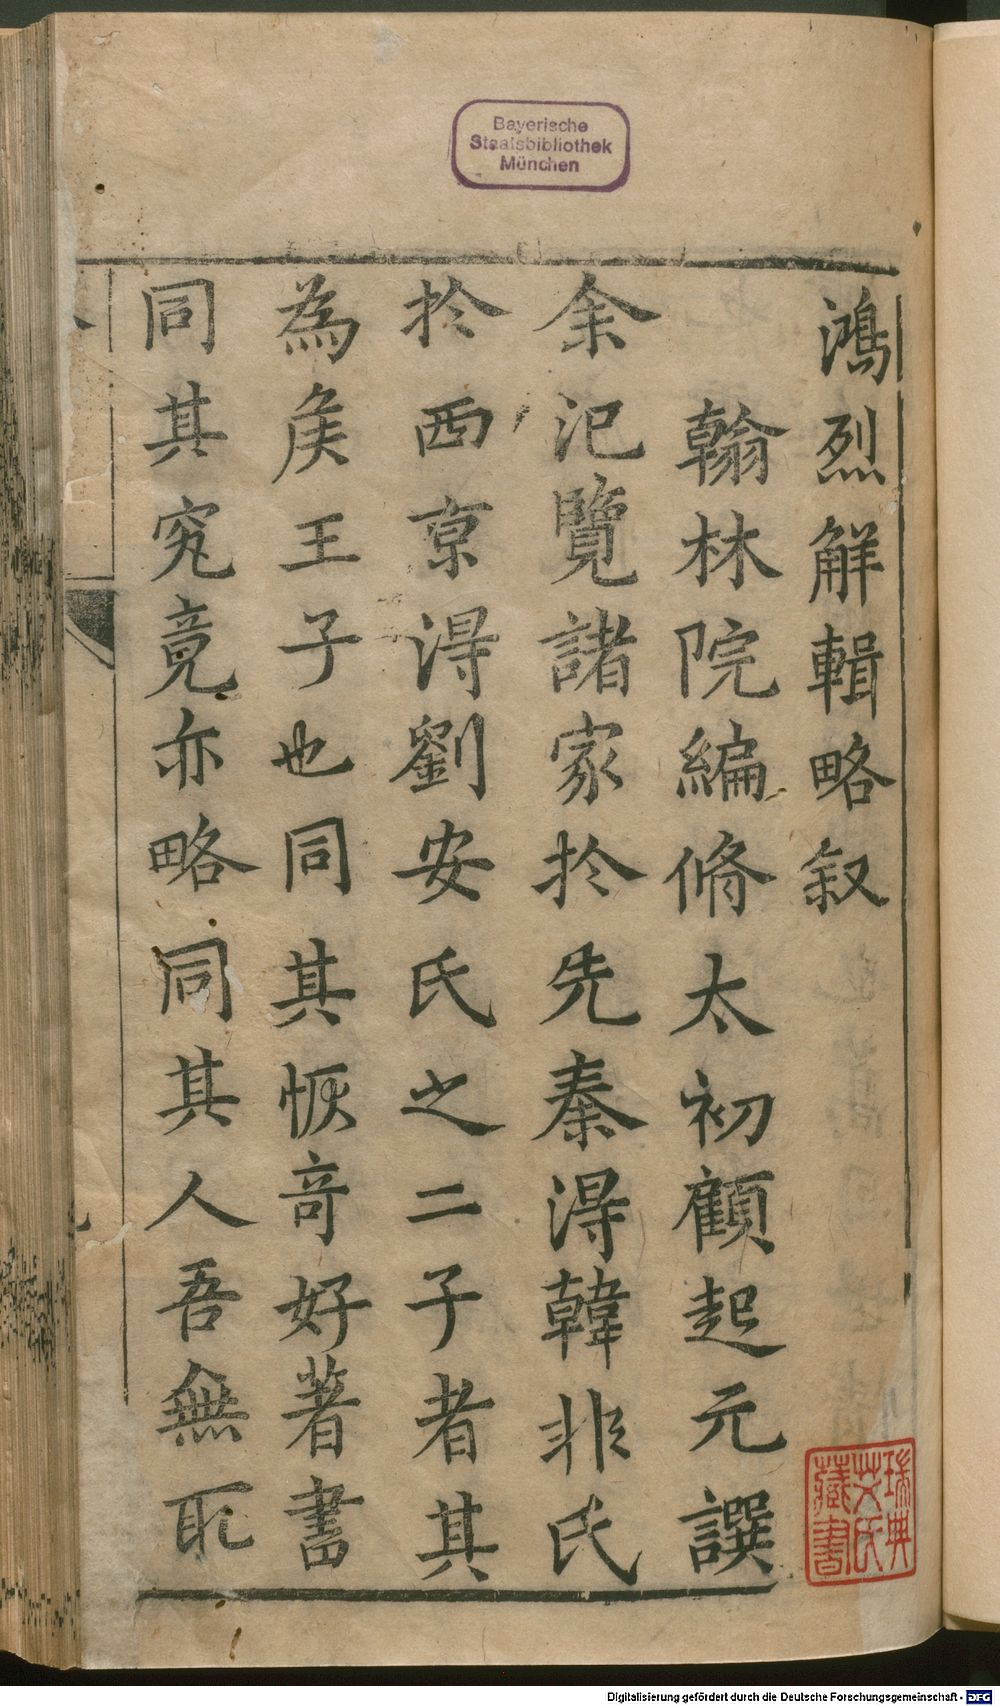 Bayerische
Staatsbibliothek
München
鴻烈解輯略叙
翰林院編脩太初顧起元譔
余汜覽諸家扵先秦淂韓非氏
扵西京淂劉安氏之二子者其
為矦王子也同其恢竒好著書
同其究竟亦略同其人吾無取
瑞典
艾氏
藏書
Digitalisierung gefördert durch die Deutsche Forschungsgemeinschaft - DFG